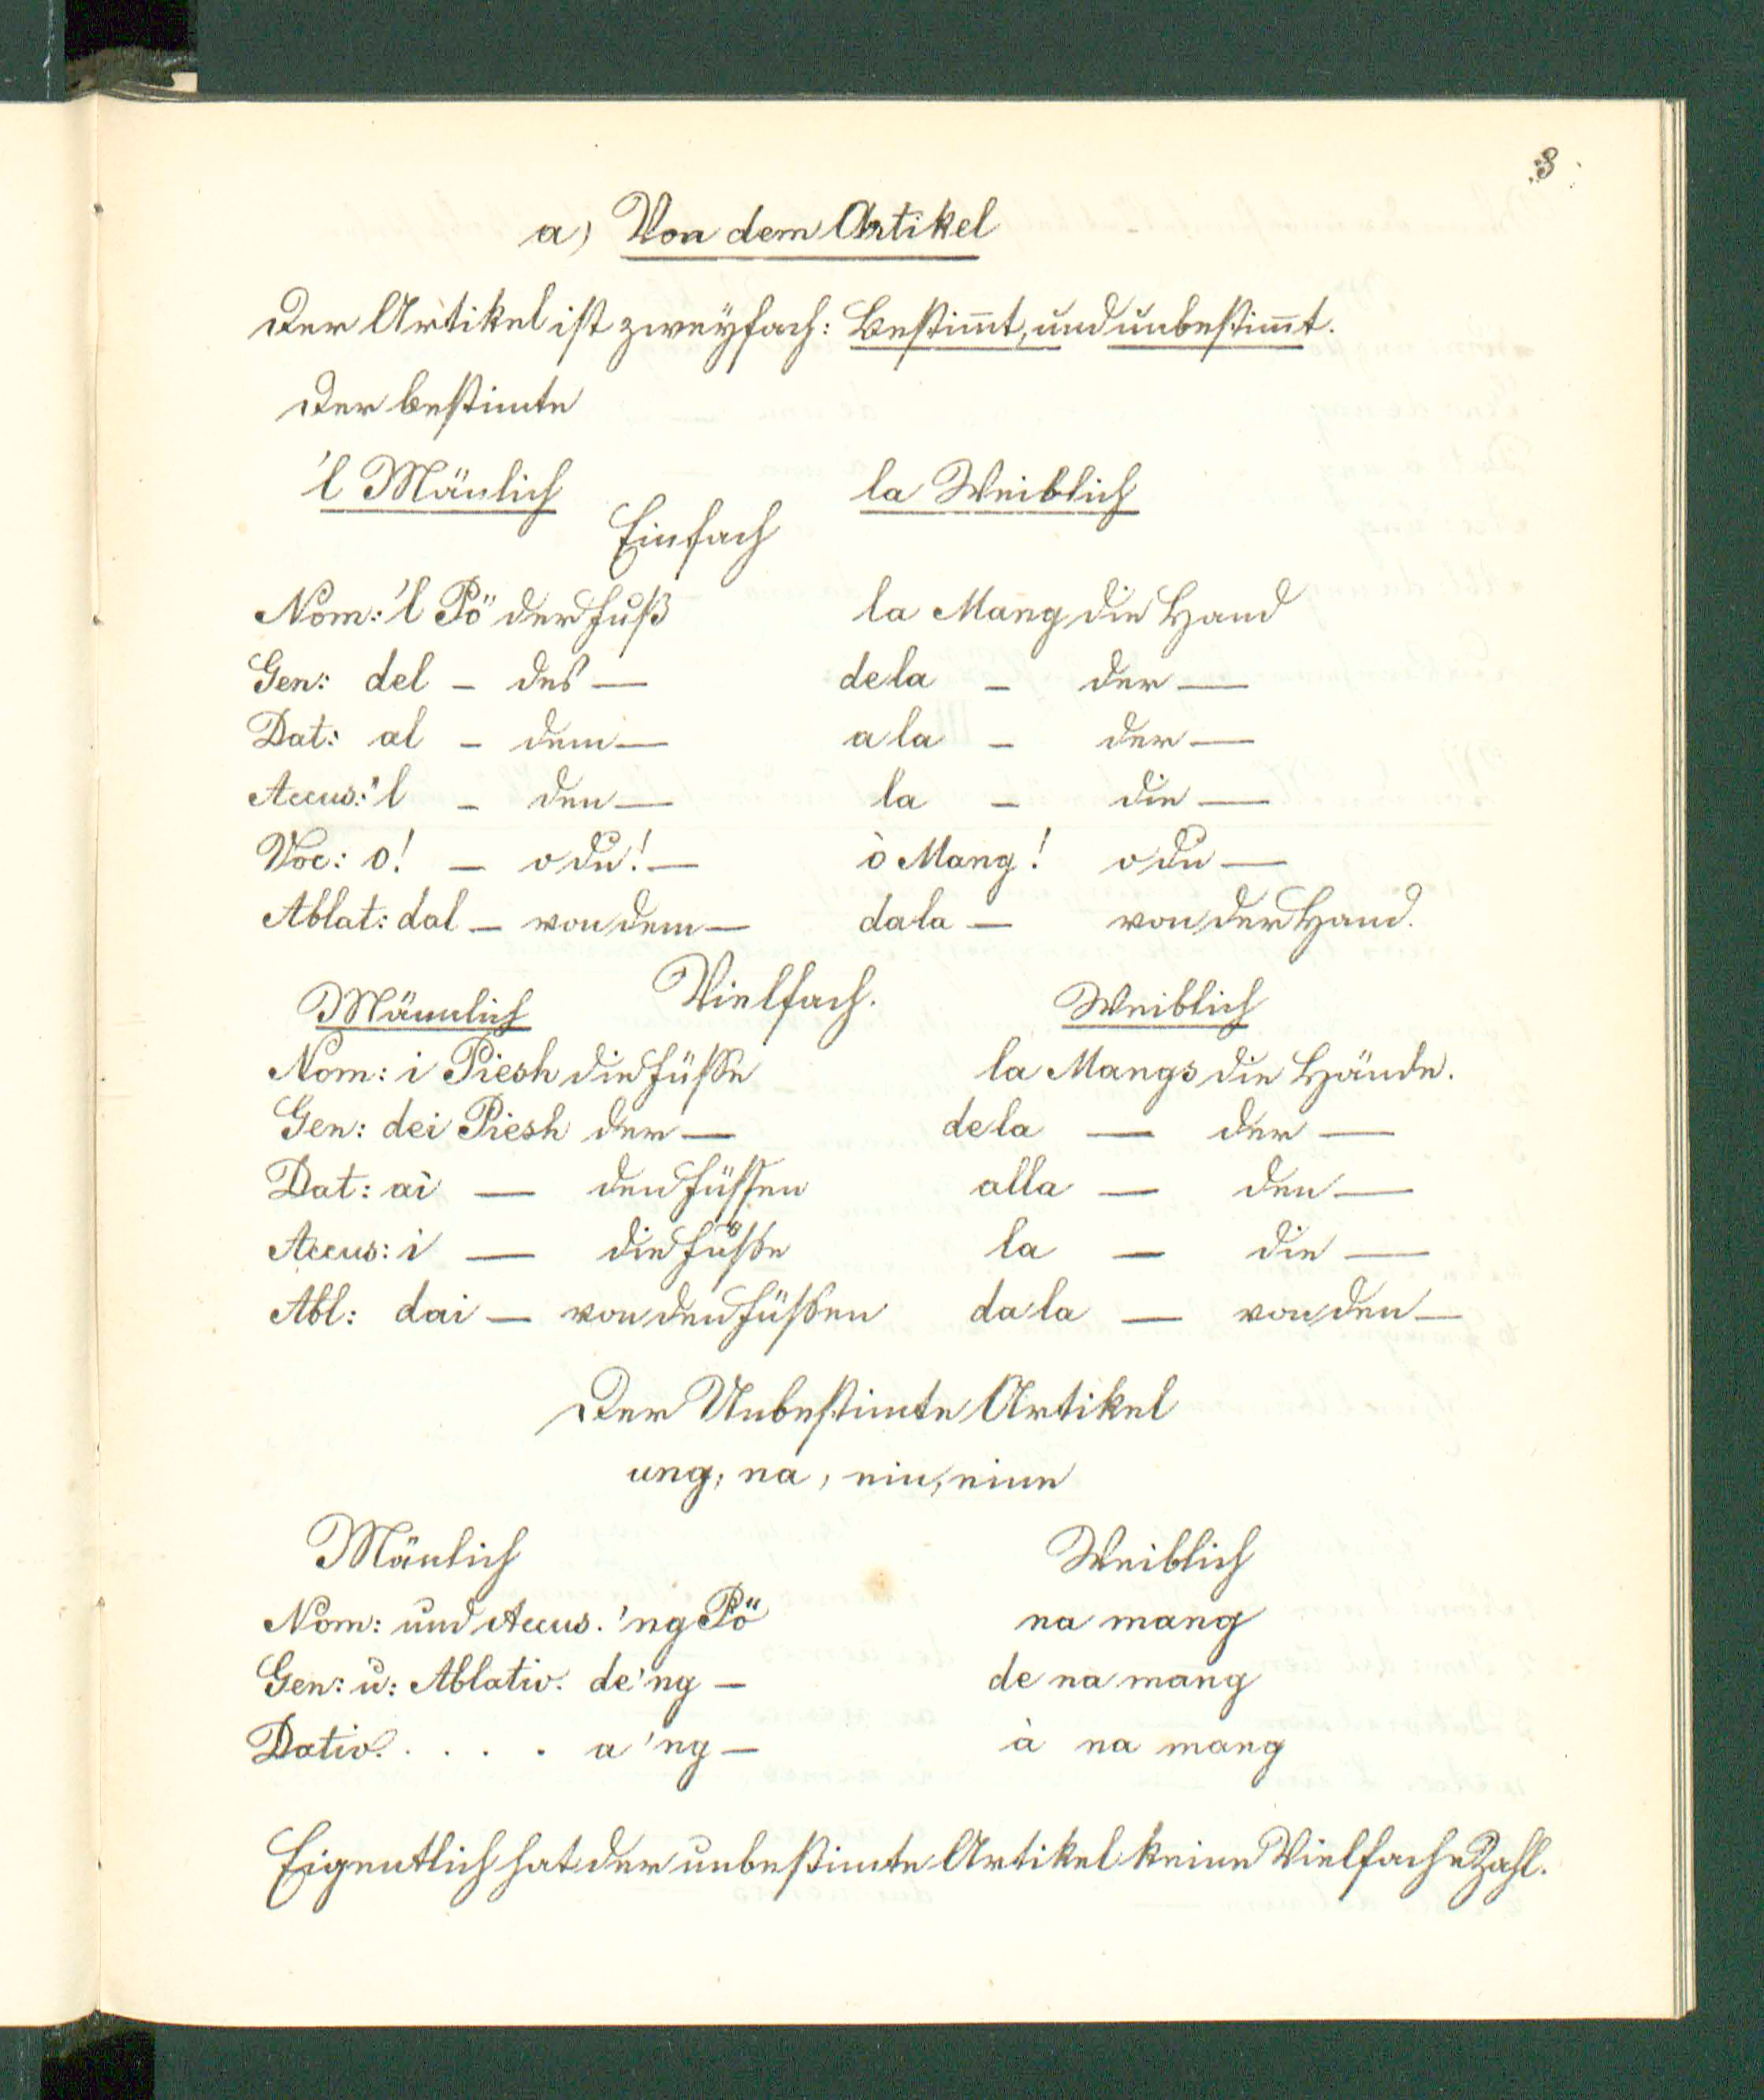 3
a) Von dem Artikel
Der Artikel ist zweyfach: Bestim̄t, und unbestim̄t.
Der bestimte
'l Mänlich la Weiblich
Einfach
Nom: 'l Pö der Fuß la Mang die Hand
Gen: del – des — dela – der —
Dat: al – dem — a la – der —
Accus: 'l – den — la – die —
Voc: o! – o du! — ò Mang! o du —
Ablat: dal – von dem — dala — von der Hand.
Vielfach.
Männlich Weiblich
Nom: i Piesh die Füsse la Mangs die Hände.
Gen: dei Piesh der — dela — der —
Dat: ai — den Füssen alla — den —
Accus: i — die Füsse la — die —
Abl: dai — von den Füssen da la — von den —
Der Unbestimte Artikel
ung, na, ein, eine
Mänlich Weiblich
Nom: und Accus. 'ng Pö na mang
Gen: u: Ablativ. de 'ng — de na mang
Dativ. . . . . a 'ng — à na mang
Eigentlich hat der unbestimte Artikel keine Vielfache Zahl.